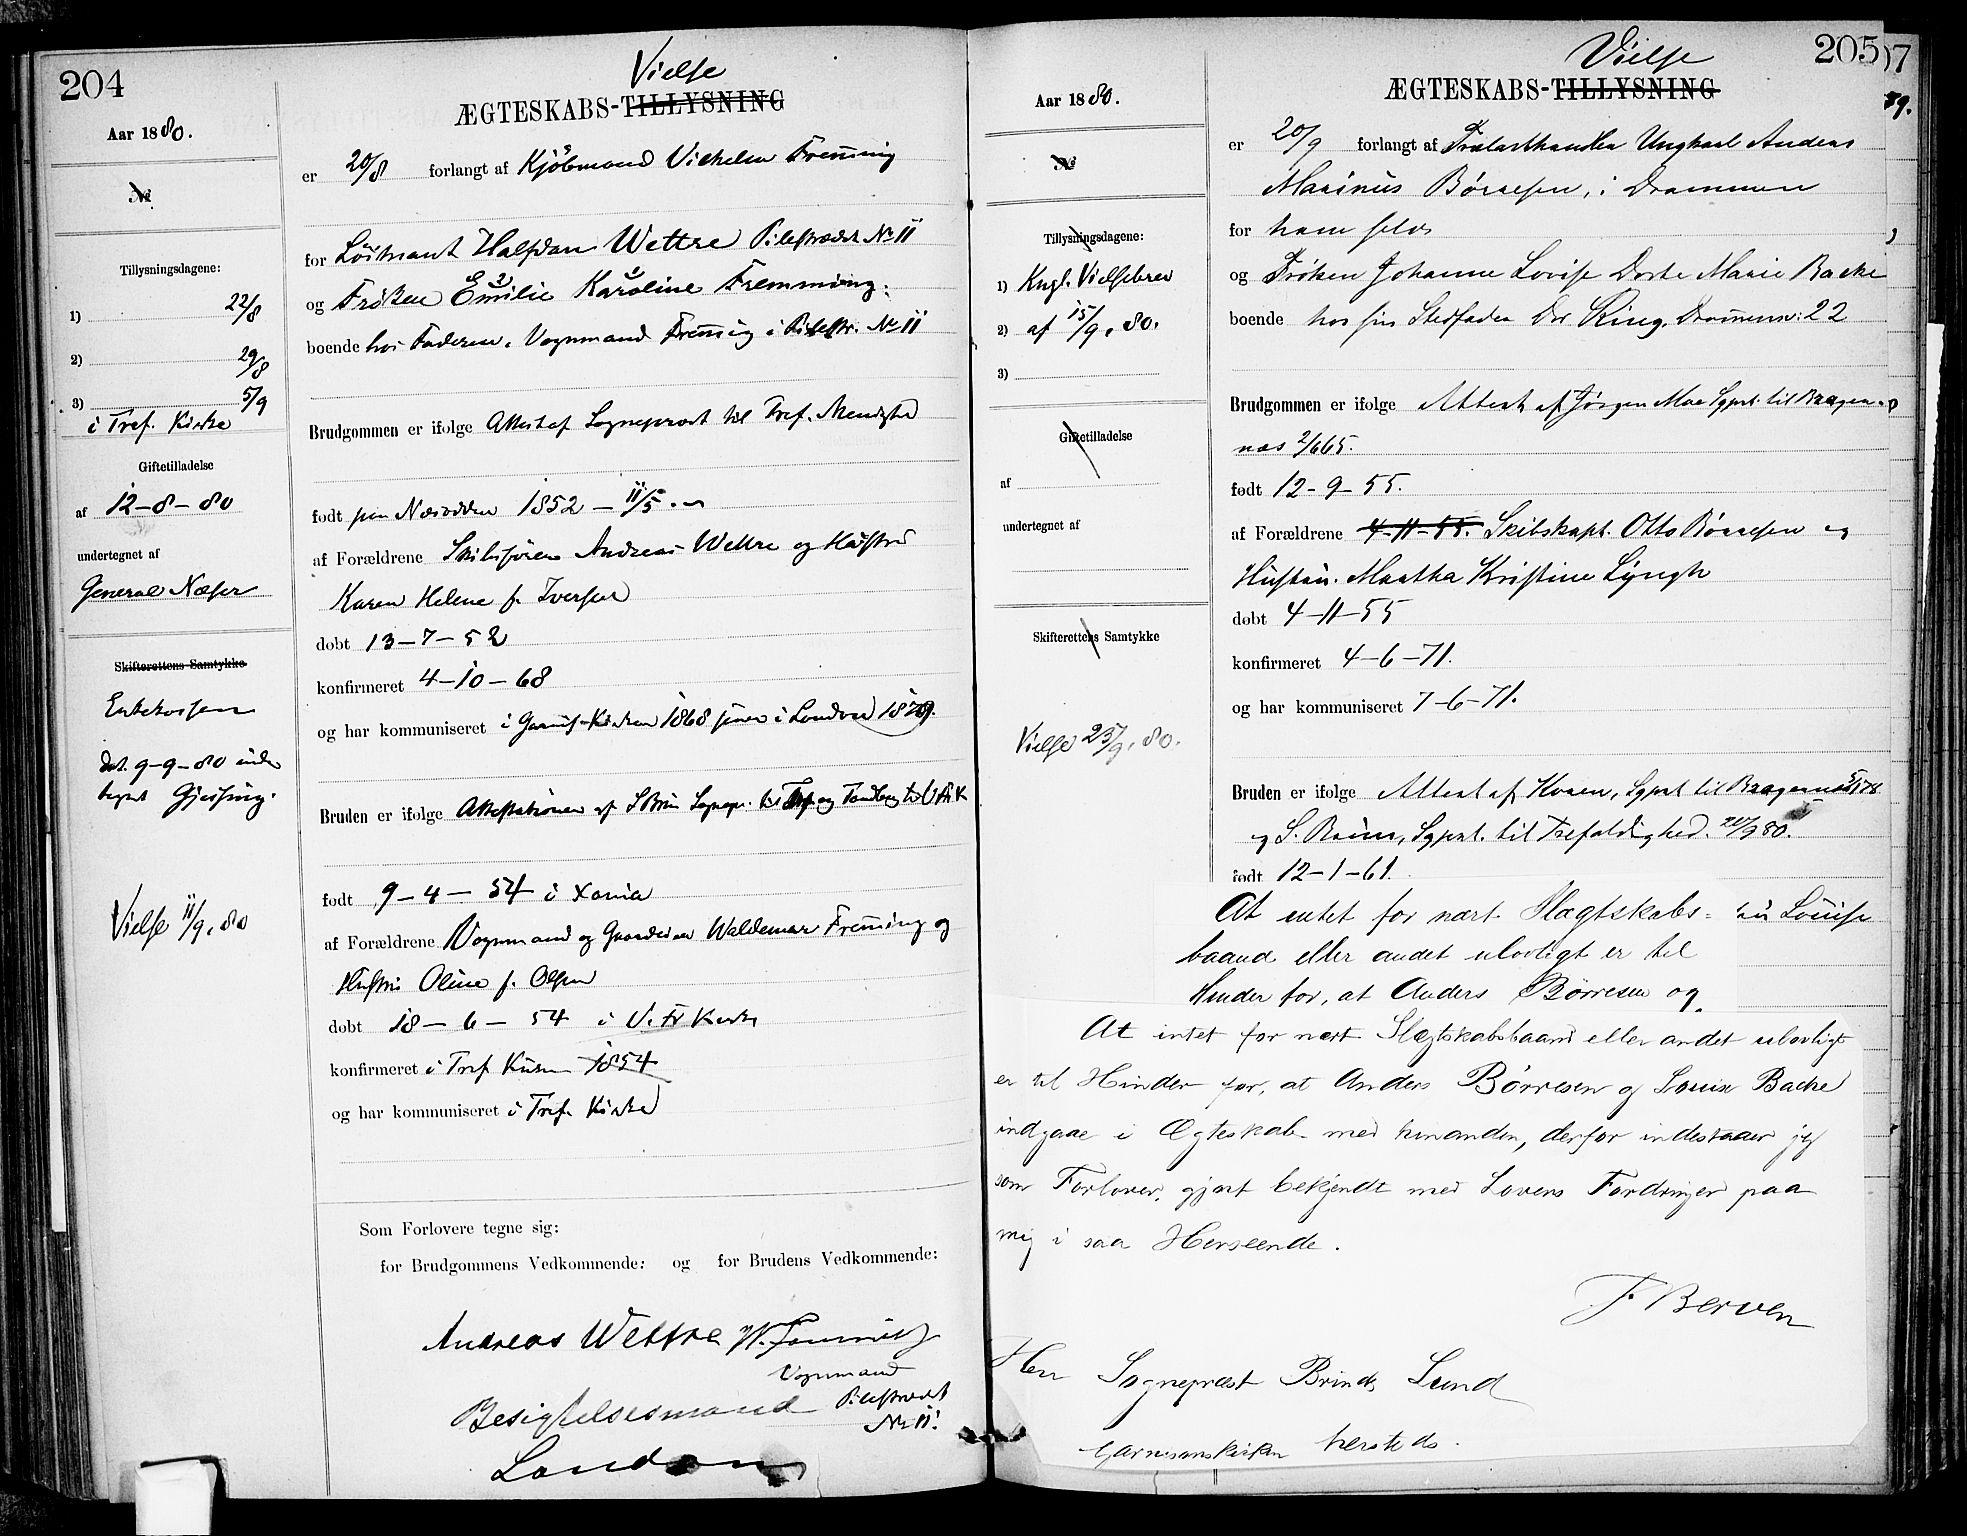 204
Vielse
ÆGTESKABS-TILLYSNING
Aar 1880.
No
Tillysningsdagene:
1) 22/8
2) 29/8
3) 5/9
i Tref. Kirke
Giftetilladelse
af 12-8-80
undertegnet af
General Næser
Skifterettens Samtykke
dat. 9-9-80 under
tegnet
Vielse 11/9. 80
er 20/8 forlangt af Kjöbmand Vilhelm Fremming
for Löitnant Halfdan Wettre Pilestrædet No 11
og Fröken Emilie Karoline Fremming.
boende hos Faderen, Vognmand Fremming i Pilestr. No 11
Brudgommen er ifølge Attest af Sogneprest til Tref. Menighed
født paa Næsodden 1852 - 11/5
af Forældrene Skibsfører Andreas Wettre og Hustru
Karen Helene f. Iversen
døbt 13-7-52
konfirmeret 4-10-68
og har kommuniseret i Garnis-Kirken 1868 i London 1879.
Bruden er ifølge Attestationer af Sognepr. til Tref. og
født 9-4-54 i Xania
af Forældrene Vognmand og Gaardeier Waldemar Fremming og
Hustru Oline f. Olsen
døbt 18-6-54 i V. Fr Kirke
konfirmeret i Tref Kirke 1854
og har kommuniseret i Tref. Kirke
Som Forlovere tegne sig:
for Brudgommens Vedkommende: og for Brudens Vedkommende:
Andreas Wettre W. Fremming
Vognmand
Besigtelsesmand Pilestrædet
No 11.
London
205
07
Vielse
ÆGTESKABS-TILLYSNING
Aar 1880.
No
Tillysningsdagene:
1) Kngl. Vielsebrev
2) af 15/9. 80.
3)
Giftetilladelse
af
undertegnet af
Skifterettens Samtykke
Vielse 25/9. 80.
er 20/9 forlangt af Trælasthandler Ungkarl Anders
Marinus Börresen, i Drammen
for ham selv
og Fröken Johanne Lovise Dorte Marie Backe
boende hos sin Stedfader Dr Ring. Drammensv: 22
Brudgommen er ifølge Attest af Jörgen Moe Sgprst. til Bragernæs
født 12-9-55.
af Forældrene 4-11-55. Skibskapt. Otto Börresen og
Hustru. Martha Kristine Lyngh
døbt 4-11-55
konfirmeret 4-6-71.
og har kommuniseret 7-6-71.
Bruden er ifølge Attest af Hvoem, Sgprst til Bragernæs
og S. Bruun, Sgprst. til Trefoldighed. 20/9 80.
født 12-1-61.
At intet for nært Slægtskabs-
baand eller andet ulovligt er til
Hinder for, at Anders Börresen og
Louise
At intet for nært Slægtskabsbaand eller andet ulovligt
er til Hinder for, at Anders Börresen og Louise Backe
indgaae i Ægteskab med hinanden, derfor indestaaer jeg
som Forlover, gjort bekjendt med Lovens Fordringer paa
mig i saa Henseende.
F. Berven
Herr Sognepræst Brinch Lund
Garnisonskirken hersteds.